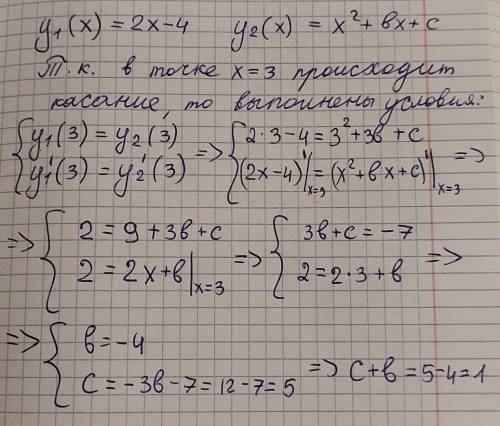 y₁(x) = 2x-4 y₂(x) = x²+вx+c
Т.к. в точке x=3 происходит
касание, то выполнены условия:
{ y₁(3) = y₂(3) => { 2·3-4=3²+3в+c
{ y₁'(3) = y₂'(3) { (2x-4)'|ₓ₌₃ = (x²+вx+c)'|ₓ₌₃ =>
=> { 2 = 9+3в+c => { 3в+c = -7
{ 2 = 2x+в|ₓ₌₃ { 2=2·3+в =>
=> { в = -4
{ c = -3в-7 = 12-7 = 5 => c+в = 5-4=1